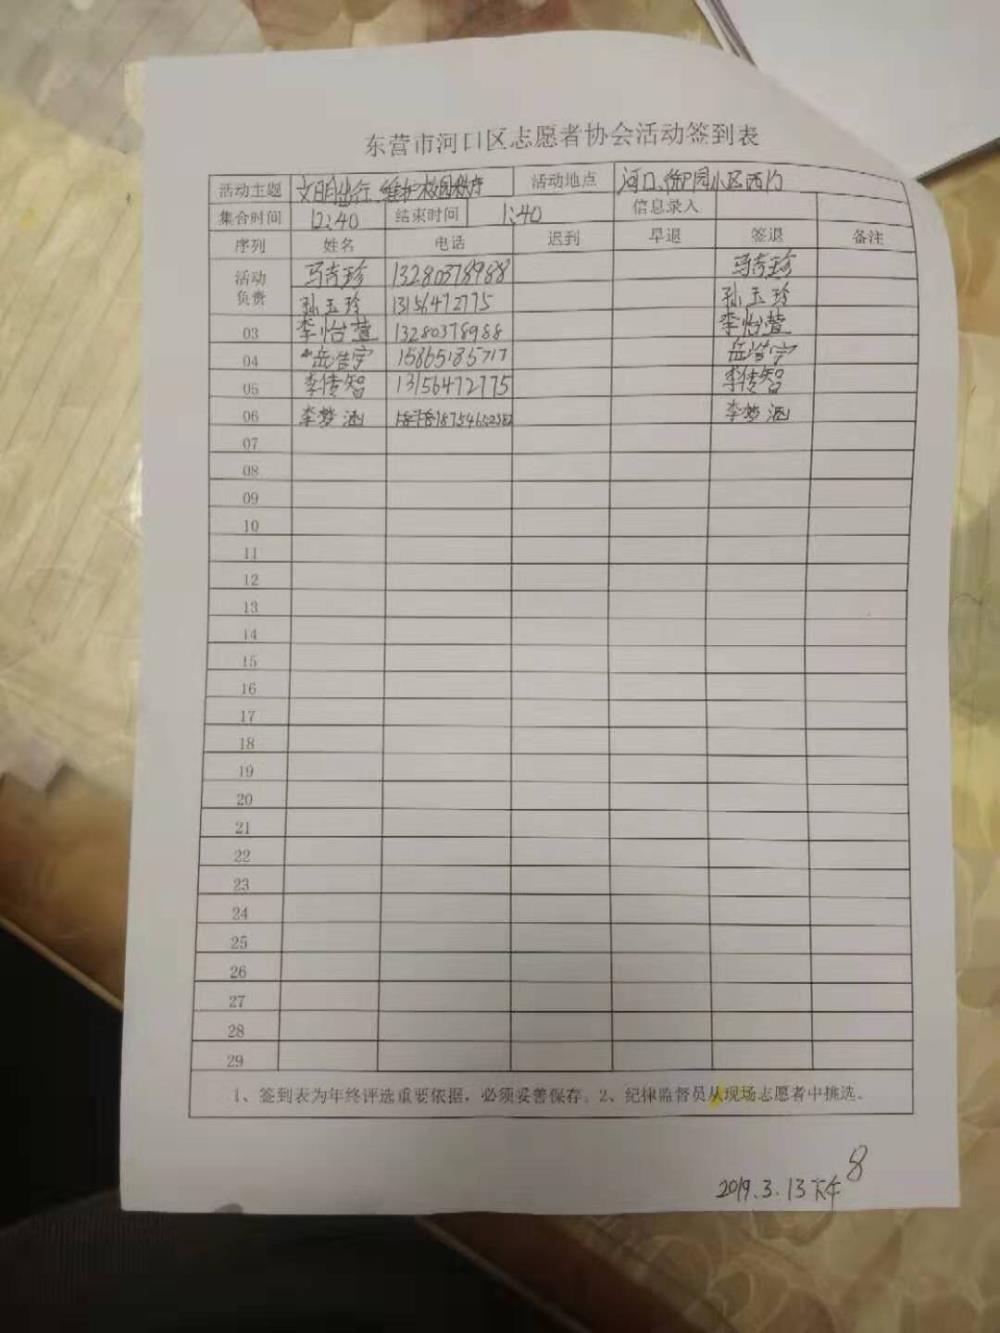 东营市河口区志愿者协会活动签到表
活动主题 文明出行、维护校园秩序 活动地点 河口、御园小区西门
集合时间 12:40 结束时间 1:40 信息录入
序列 姓名 电话 迟到 早退 签退 备注
活动负责 马秀珍 13280378988 马秀珍
孙玉玲 13156472775 孙玉玲
03 李怡萱 13280378988 李怡萱
04 岳浩宇 15865185717 岳浩宇
05 李传智 13156472775 李传智
06 李梦涵 18754652382 李梦涵
07
08
09
10
11
12
13
14
15
16
17
18
19
20
21
22
23
24
25
26
27
28
29
1、签到表为年终评选重要依据，必须妥善保存。2、纪律监督员从现场志愿者中挑选。
8
2019.3.13下午